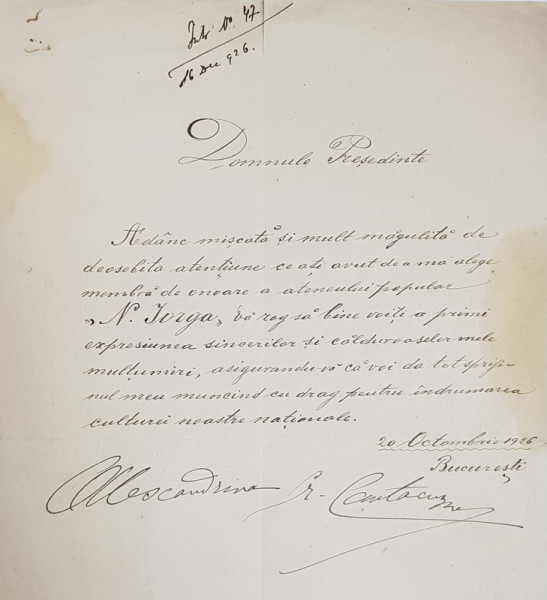 Intr. No. 47
16 Dec 926.
Domnule Președinte
Adânc mișcată și mult măgulită de
deosebita atențiune ce ați avut de a mă alege
membră de onoare a ateneului popular
„N. Iorga„ vă rog să bine voiți a primi
expresiunea sincerilor și călduroaselor mele
mulțumiri, asigurându-vă că voi da tot spriji-
nul meu muncind cu drag pentru îndrumarea
culturei noastre naționale.
20 Octombrie 1926
București
Alexandrina Gr. Cantacuzino